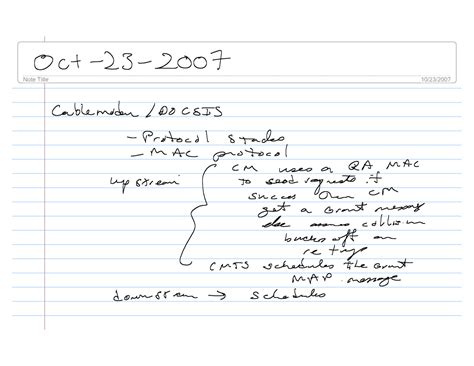 Oct-23-2007
Note Title
10/23/2007
Cablemodem / DOCSIS
- Protocol stacks
- MAC protocol
upstream
CM uses a QA MAC
to send requests if
success then CM
get a Grant message
else collision
backs off an
retrys
CMTS schedules the Grant
MAP message
downstream → schedules